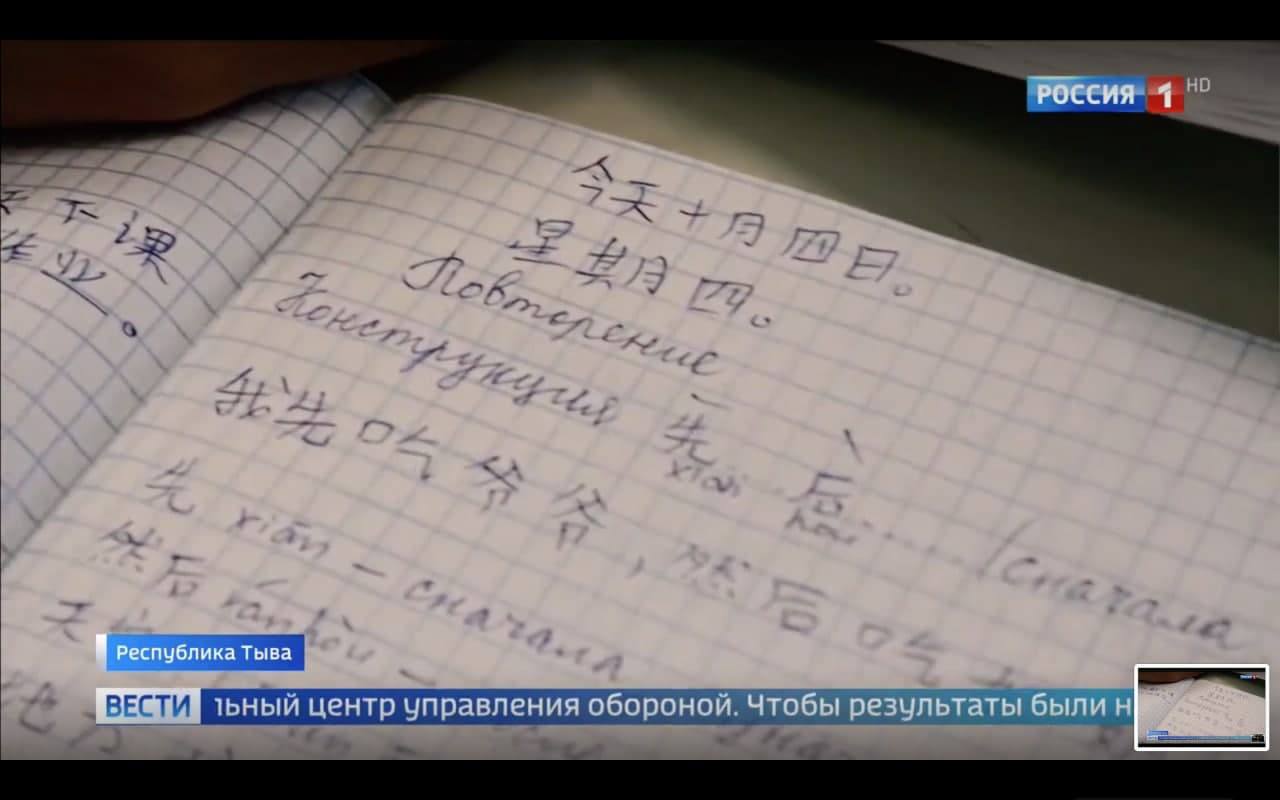 РОССИЯ 1 HD
下课
作业。
今天十月四日。
星期四。
Повторение
Конструкция 先 … 后 ….. /сначала
xiān hòu
我先吃爷爷，然后吃
先 xiān – сначала
然后 ránhòu –
Республика Тыва
ВЕСТИ ьный центр управления обороной. Чтобы результаты были н